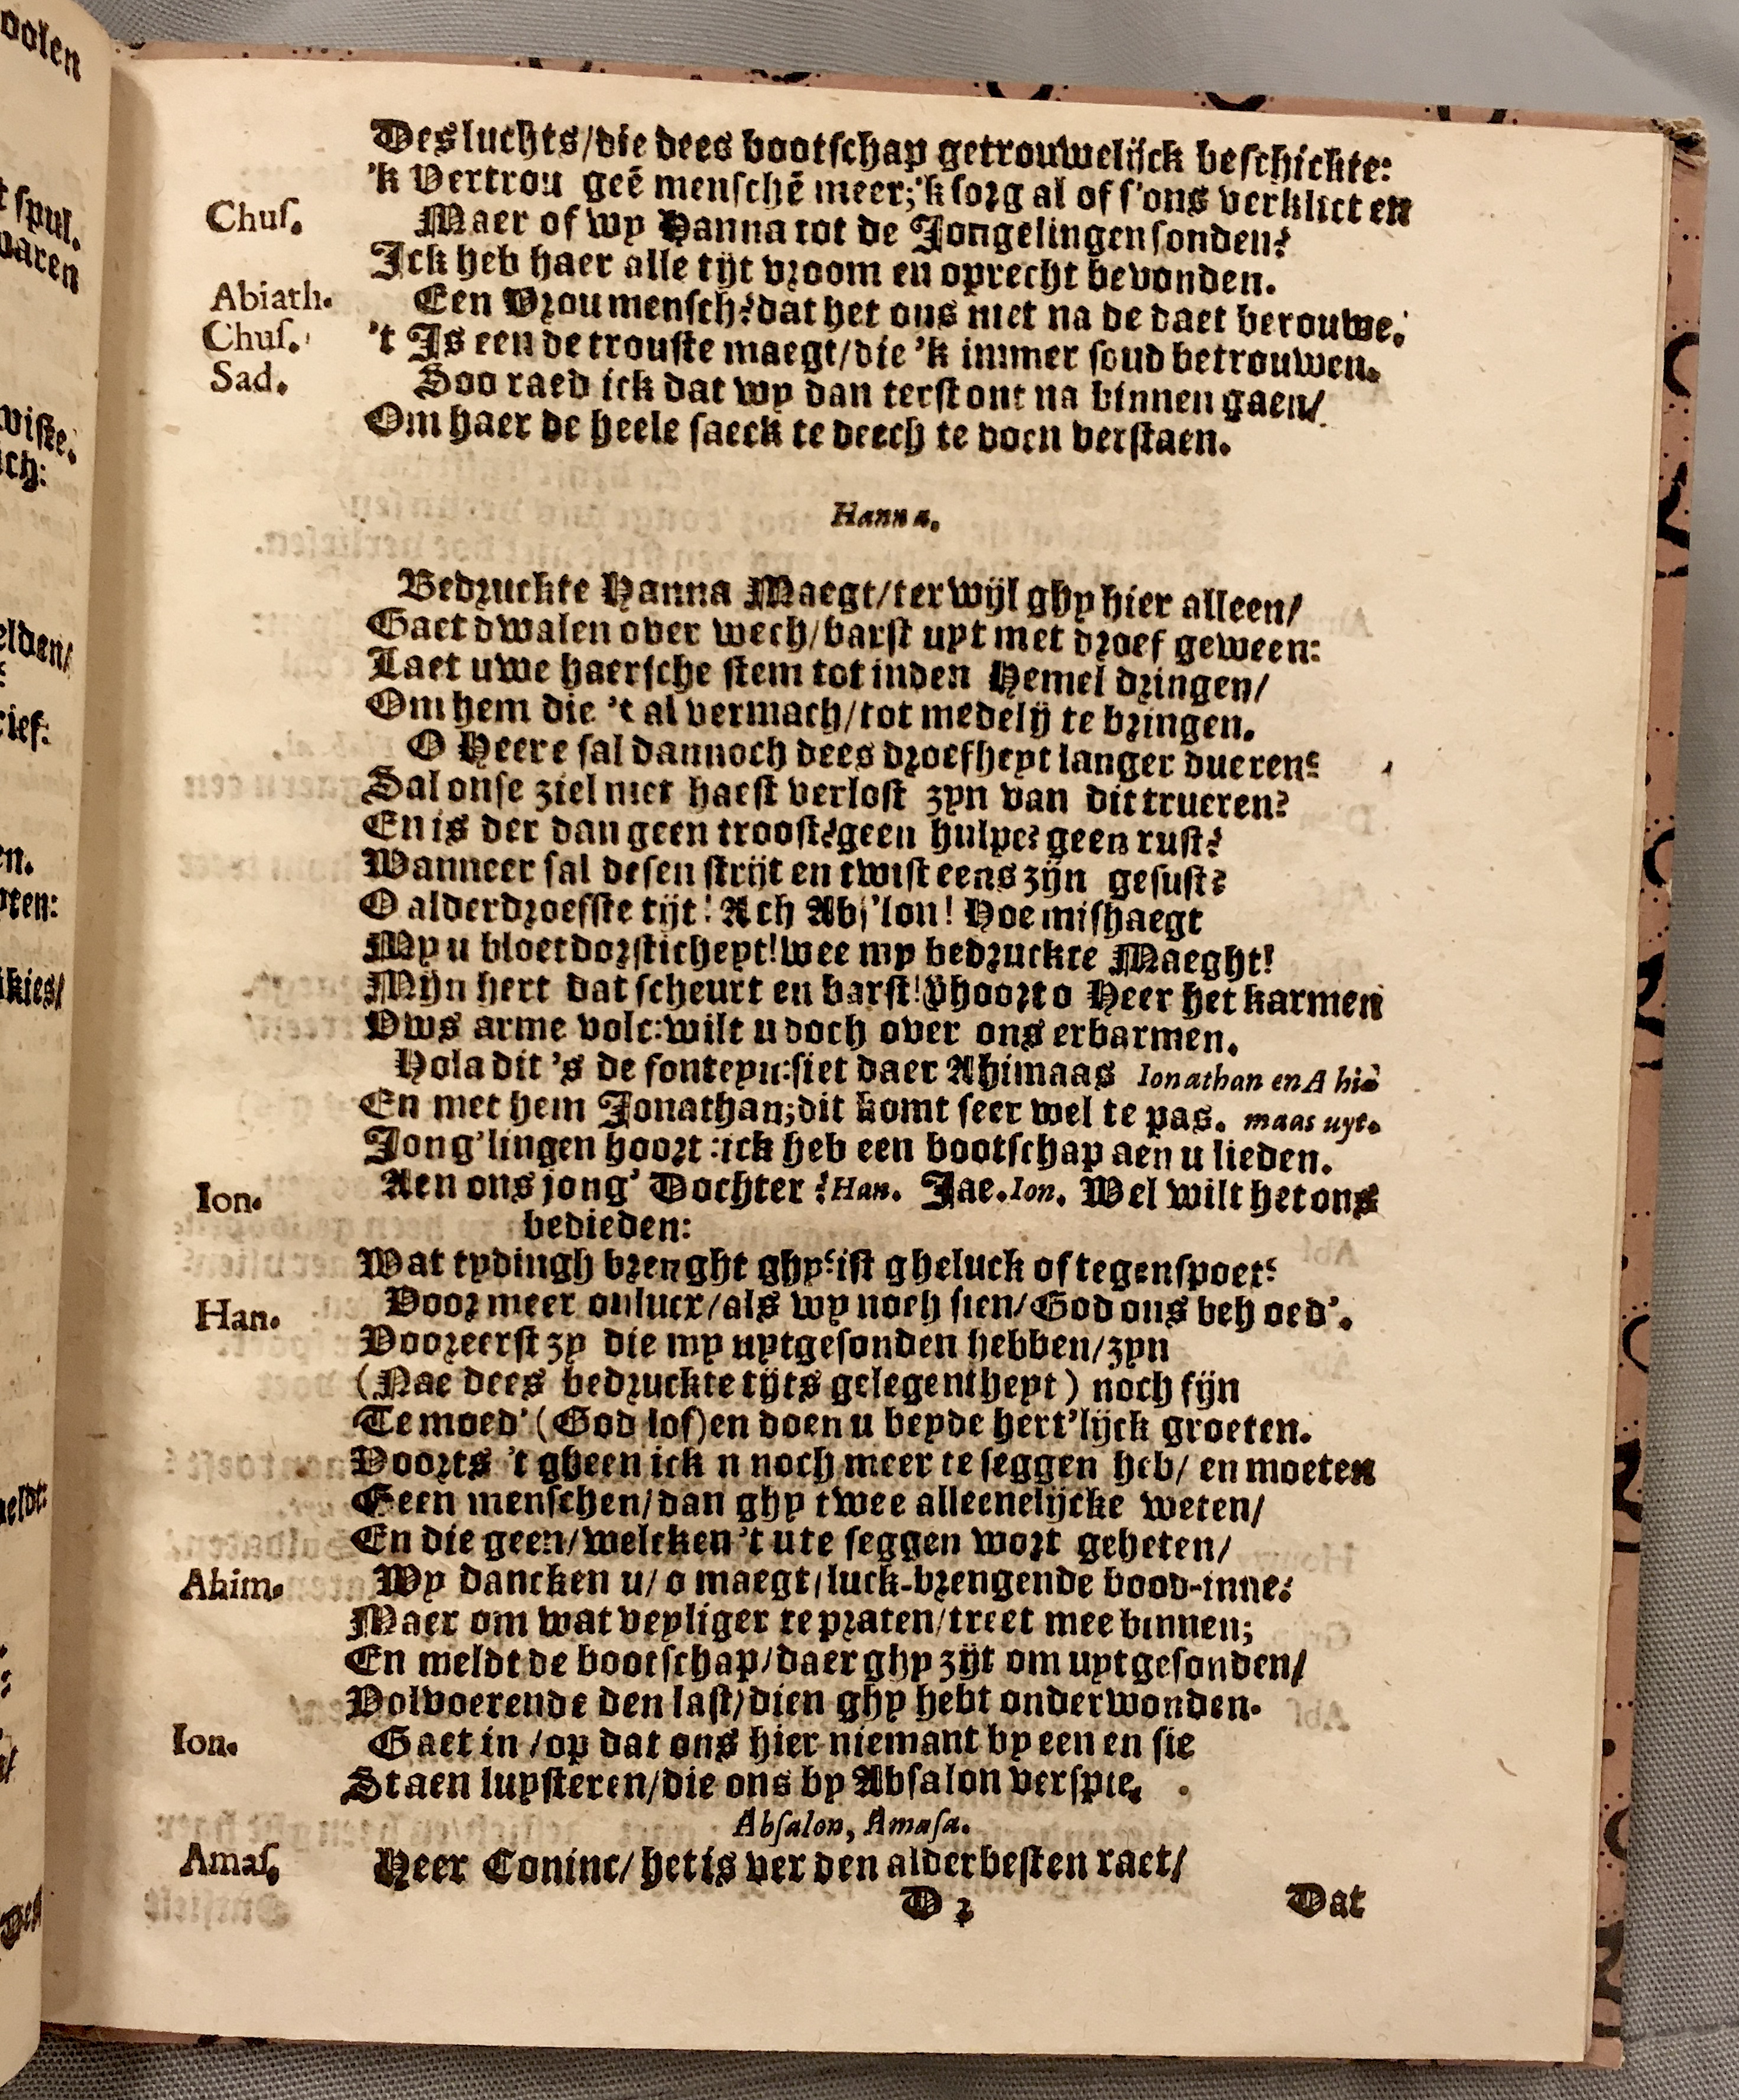 Des luchts/die dees bootschap getrouwelijck beschickte:
'k Vertrou geē menschē meer;'k sorg al of s'ons verklicten
Chus. Maer of wy Hanna tot de Jongelingen sonden?
Ick heb haer alle tijt vroom en oprecht bevonden.
Abiath. Een Vroumensch? dat het ons niet na de daet berouwe.
Chus. 't Is een de trouste maegt/die 'k immer soud betrouwen.
Sad. Soo raed ick dat wy dan terstont na binnen gaen/
Om haer de heele saeck te deech te doen verstaen.
Hanna.
Bedruckte Hanna Maegt/terwijl ghy hier alleen/
Gaet dwalen over wech/barst uyt met droef geween:
Laet uwe haersche stem tot inden Hemel dringen/
Om hem die 't al vermach/tot medelij te bringen.
O Heere sal dannoch dees droefheyt langer dueren?
Sal onse ziel niet haest verlost zyn van dit trueren?
En is der dan geen troost? geen hulpe? geen rust?
Wanneer sal desen strijt en twist eens zijn gesust?
O alderdroefste tijt! Ach Abs'lon! Hoe mishaegt
My u bloetdorsticheyt! wee my bedruckte Maeght!
Mijn hert dat scheurt en barst! Vhoort o Heer het karmen
Uws arme volc: wilt u doch over ons erbarmen.
Hola dit 's de fonteyn: siet daer Ahimaas Ionathan en Ahi-
En met hem Jonathan; dit komt seer wel te pas. maas uyt.
Jong'lingen hoort: ick heb een bootschap aen u lieden.
Ion. Aen ons jong' Dochter? Han. Jae. Ion. Wel wilt het ons
bedieden:
Wat tydingh brenght ghy? ist gheluck of tegenspoet?
Han. Voor meer onlucx/als wy noch sien/God ons behoed'.
Voor eerst zy die my uytgesonden hebben/zyn
(Nae dees bedruckte tijts gelegentheyt) noch fijn
Te moed' (God lof) en doen u beyde hert'lijck groeten.
Voorts 't gheen ick u noch meer te seggen heb/ en moeten
Geen menschen/dan ghy twee alleenelijcke weten/
En die geen/welcken 't u te seggen wort geheten/
Ahim. Wy dancken u/ o maegt/luck-brengende bood-inne:
Maer om wat veyliger te praten/treet mee binnen;
En meldt de bootschap/daer ghy zijt om uytgesonden/
Volvoerende den last/dien ghy hebt onderwonden.
Ion. Gaet in/op dat ons hier niemant by een en sie
Staen luysteren/die ons by Absalon verspie.
Absalon, Amasa.
Amas. Heer Coninc/ het is ver den alderbesten raet/
D 2 Dat